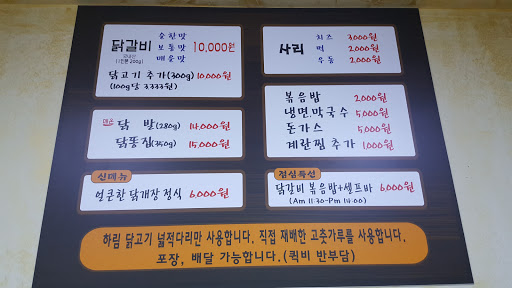 순한맛
닭갈비 보통맛 10,000원
(1인분 200g) 매운맛
닭고기 추가(300g) 10,000원
(100g당 3,333원)
닭 발(280g) 14,000원
닭똥집(350g) 15,000원
신메뉴
얼큰한 닭개장 정식 6,000원
치즈 3,000원
사리 떡 2,000원
우동 2,000원
볶음밥 2,000원
냉면.막국수 5,000원
돈가스 5,000원
계란찜 추가 1,000원
점심특선
닭갈비 볶음밥+셀프바 6,000원
(Am 11:30-Pm 14:00)
하림 닭고기 넓적다리만 사용합니다. 직접 재배한 고춧가루를 사용합니다.
포장, 배달 가능합니다.(퀵비 반부담)